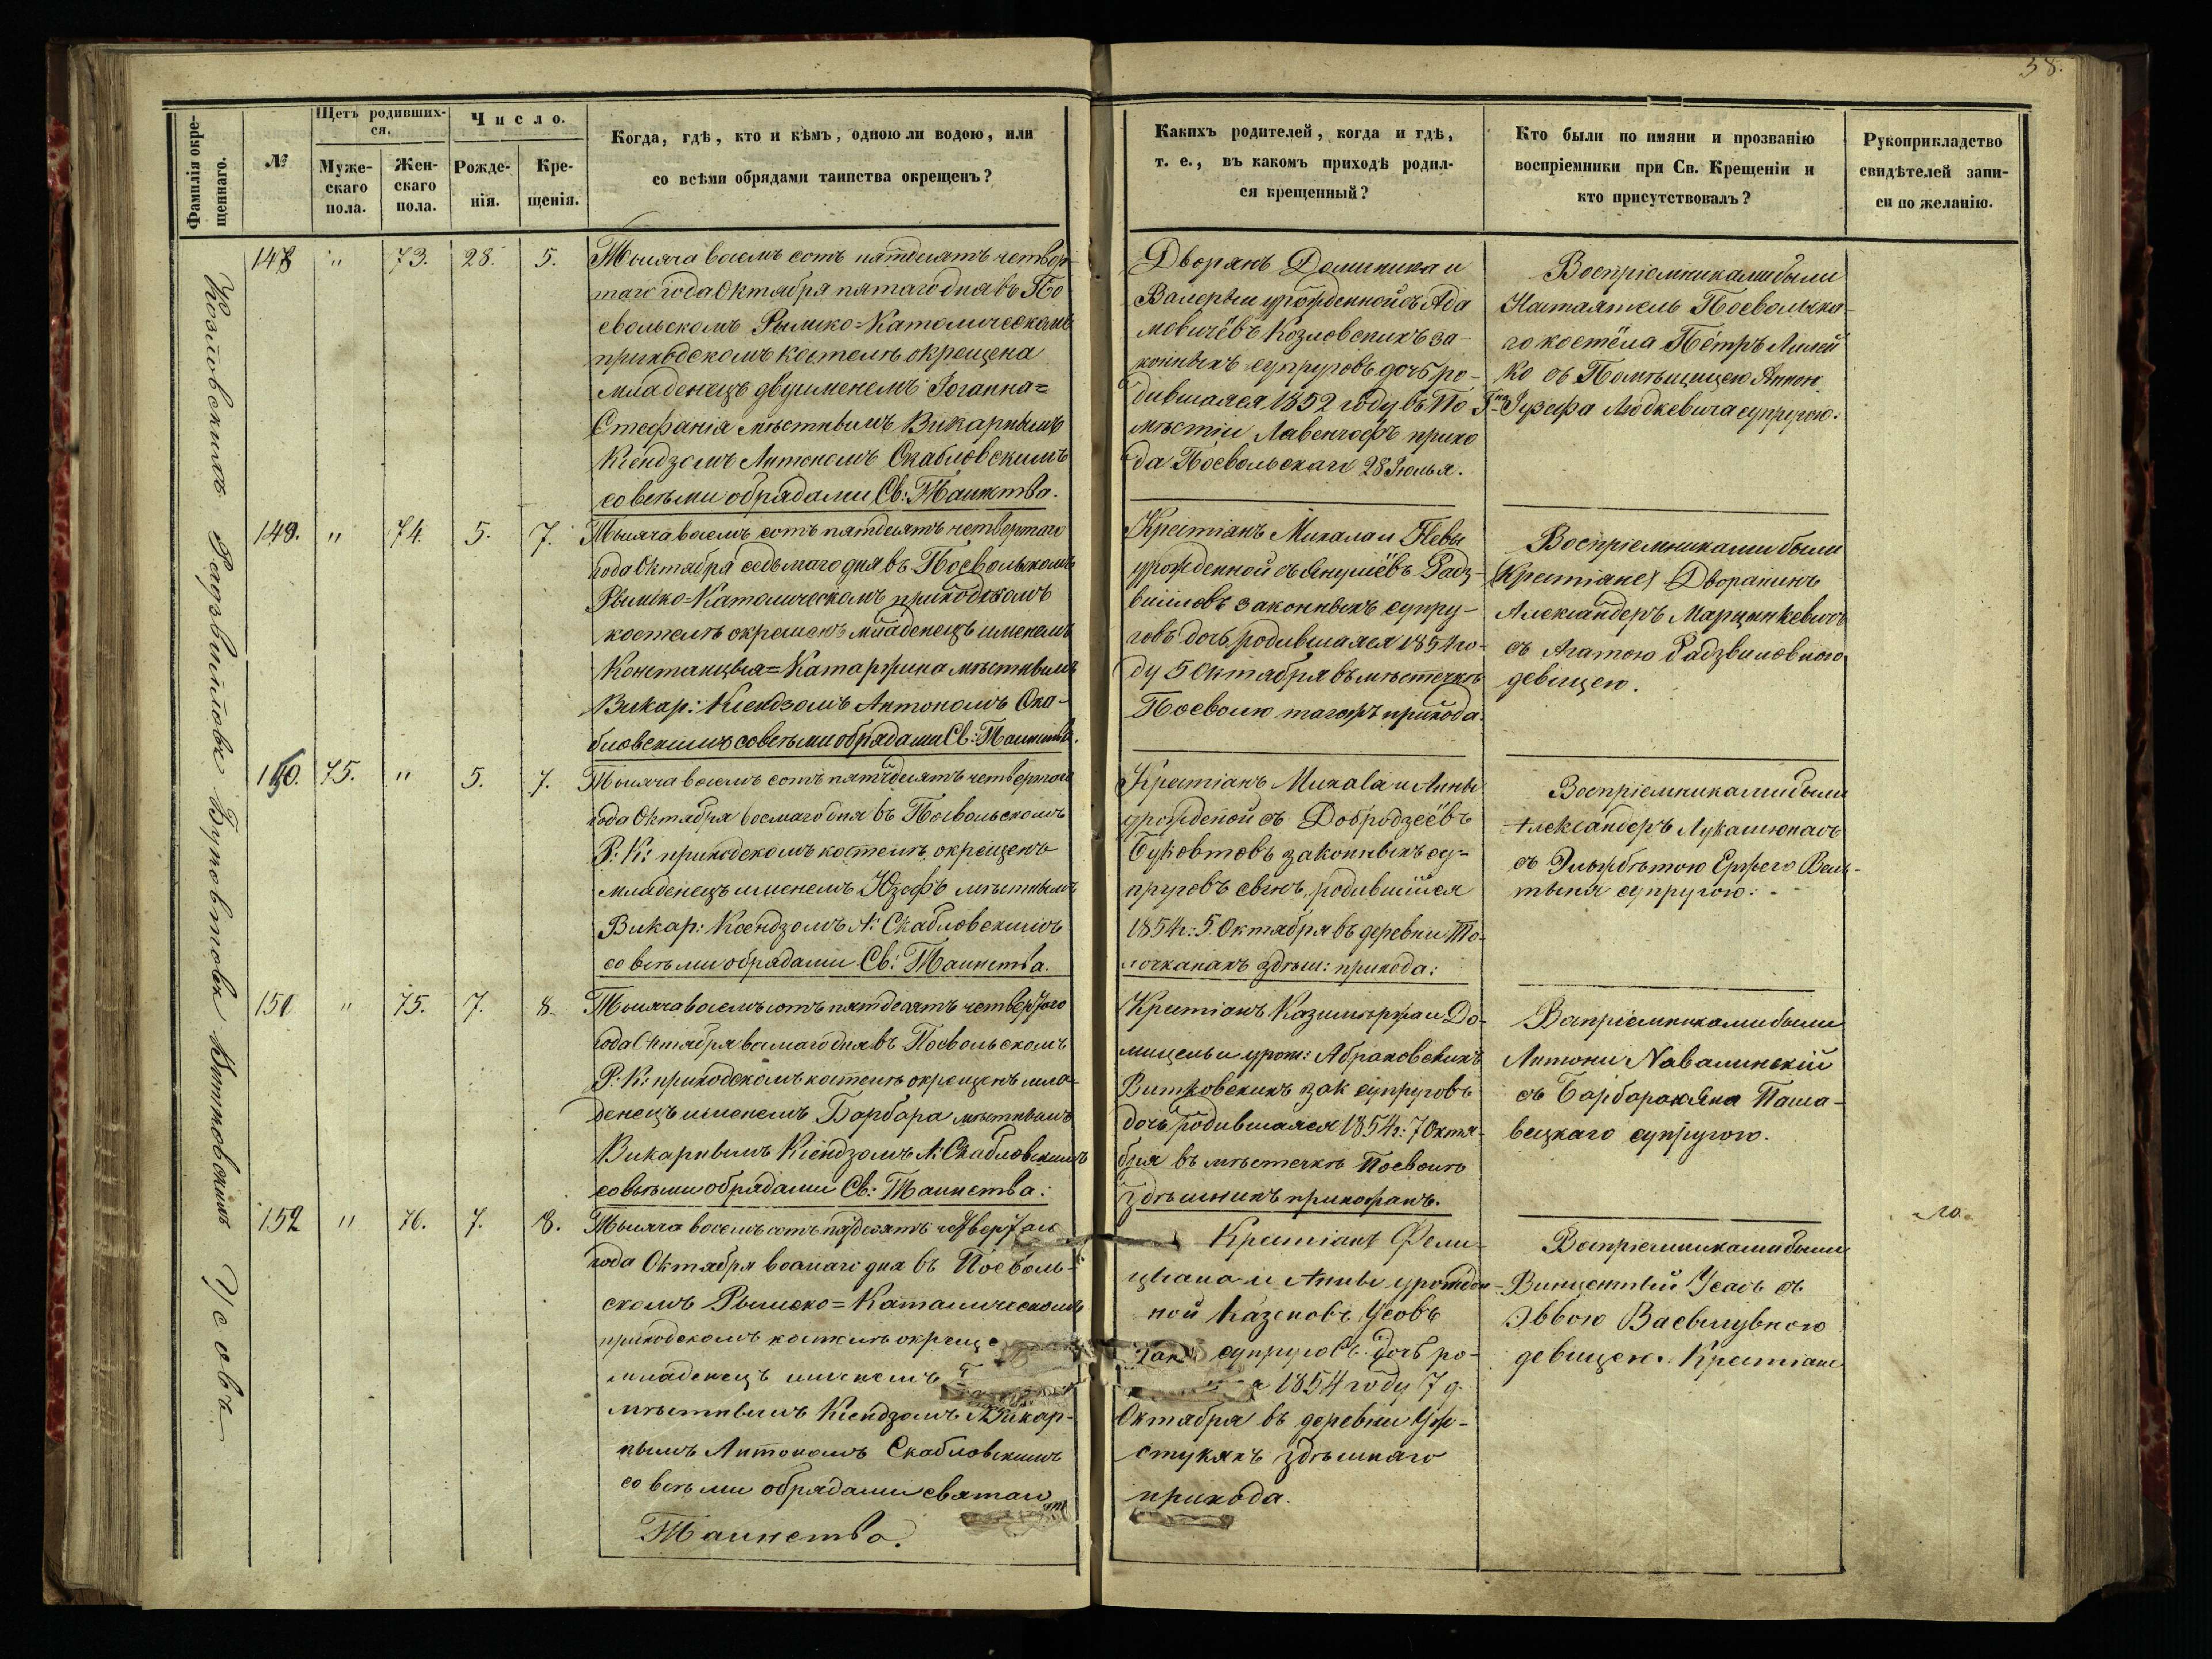 38.
Фамилія окре-
щеннаго.
№
Щетъ родивших-
ся.
Муже-
скаго
пола.
Жен-
скаго
пола.
Число.
Рожде-
нія.
Кре-
щенія.
Когда, гдѣ, кто и кѣмъ, одною ли водою, или
со всѣми обрядами таинства окрещенъ?
Какихъ родителей, когда и гдѣ,
т. е., въ какомъ приходѣ родил-
ся крещенный?
Кто были по имяни и прозванію
воспріемники при Св. Крещеніи и
кто присутствовалъ?
Рукоприкладство
свидѣтелей запи-
си по желанію.
Козловскихъ
148 " 73. 28. 5.
Тысяча восемь сотъ пятдесятъ четвер-
таго года Октября пятаго дня въ По
свольскомъ Рымско=Католическомъ
приходскомъ костелѣ окрещена
младенецъ двуименемъ Іоганна=
Стефанія мѣстнымъ Викарнымъ
Ксендзомъ Антономъ Скабловскимъ
со всѣми обрядами Св: Таинства.
Дворянъ Доминика и
Валерыи урожденной съ Ада
мовичёвъ Козловскихъ за-
конныхъ супруговъ дочь ро-
дившаяся 1852 году въ По
мѣстіи Лавенгофъ прихо
да Посвольскаго 28 Іюлья.
Воспріемниками были
Настаятель Посвольска-
го костёла Пётръ Лилей
ко съ Помѣщицею Антон.
Іузефа Людкевича супругою.
Радзвиловъ
149. " 74. 5. 7.
Тысяча восемь сотъ пятдесятъ четвертаго
года Октября седьмаго дня въ Посвольскомъ
Рымско=Католическомъ приходскомъ
костелѣ окрещенъ младенецъ именемъ
Констанцыя=Катаржина мѣстнымъ
Викар: Ксендзомъ Антономъ Ска-
бловскимъ со всѣми обрядами Св: Таинства.
Крестіанъ Михала и Невы
урожденной съ Янушёвъ Радз-
виловъ законныхъ супру-
говъ дочь родившаяся 1854 го-
ду 5 Октября въ мѣстечкѣ
Посволю тагожъ прихода.
Воспріемниками были
Крестіане Дворанинъ
Александеръ Марцинкевичъ
съ Агатою Радзвиловною
девицею.
Буновтовъ
150. 75. " 5. 7.
Тысяча восемь сотъ пятдесятъ четвертаго
года Октября восмаго дня въ Посвольскомъ
Р: К: приходскомъ костелѣ окрещенъ
младенецъ именемъ Юзефъ мѣстнымъ
Викар: Ксендзомъ А: Скабловскимъ
со всѣми обрядами Св: Таинства.
Крестіанъ Михала и Анны
урожденой съ Добродзеёвъ
законныхъ су-
пруговъ сынъ, родившійся
1854 г: 5 Октября въ деревни То-
лочканахъ здѣш: прихода:
Воспріемниками были
Александеръ Лукашюнасъ
съ Эльжбѣтою Ержего
супругою:
151 " 75. 7. 8.
Тысяча восемь сотъ пятдесятъ четвертаго
года Октября восмаго дня въ Посвольскомъ
Р: К: приходскомъ костелѣ окрещенъ мла-
денецъ именемъ Барбара мѣстнымъ
Викарнымъ Ксендзомъ А: Скабловскимъ
со всѣми обрядами Св: Таинства:
Крестіанъ Казимержа и До-
мицели урож: Абрамовскихъ
Витковскихъ зак супруговъ
дочь родившаяся 1854 г: 7 Октя-
бря въ мѣстечкѣ Посволѣ
здѣшнихъ прихожанъ.
Вапріемниками были
Антони Навалинскій
съ Барбарою Яна Паша-
вецкаго супругою.
Усовъ
152 " 76. 7. 8.
Тысяча восемь сотъ пядесятъ четвертаго
года Октября восмаго дня въ Посволь-
скомъ Рымско=Каталическомъ
приходскомъ костелѣ окреще
младенецъ именемъ
мѣстнымъ Ксендзомъ Викар-
нымъ Антономъ Скабловскимъ
со всѣми обрядами святаго
Таинства.
Крестіанъ Фели-
цыана и Анны урожден-
ной Казеновъ Усовъ
зак супруговъ дочь ро-
я 1854 году 7 д.
Октября въ деревни
здѣшняго
прихода.
Вапріемниками были
Винцентый Усасъ съ
Эввою
девицею. Крестіане